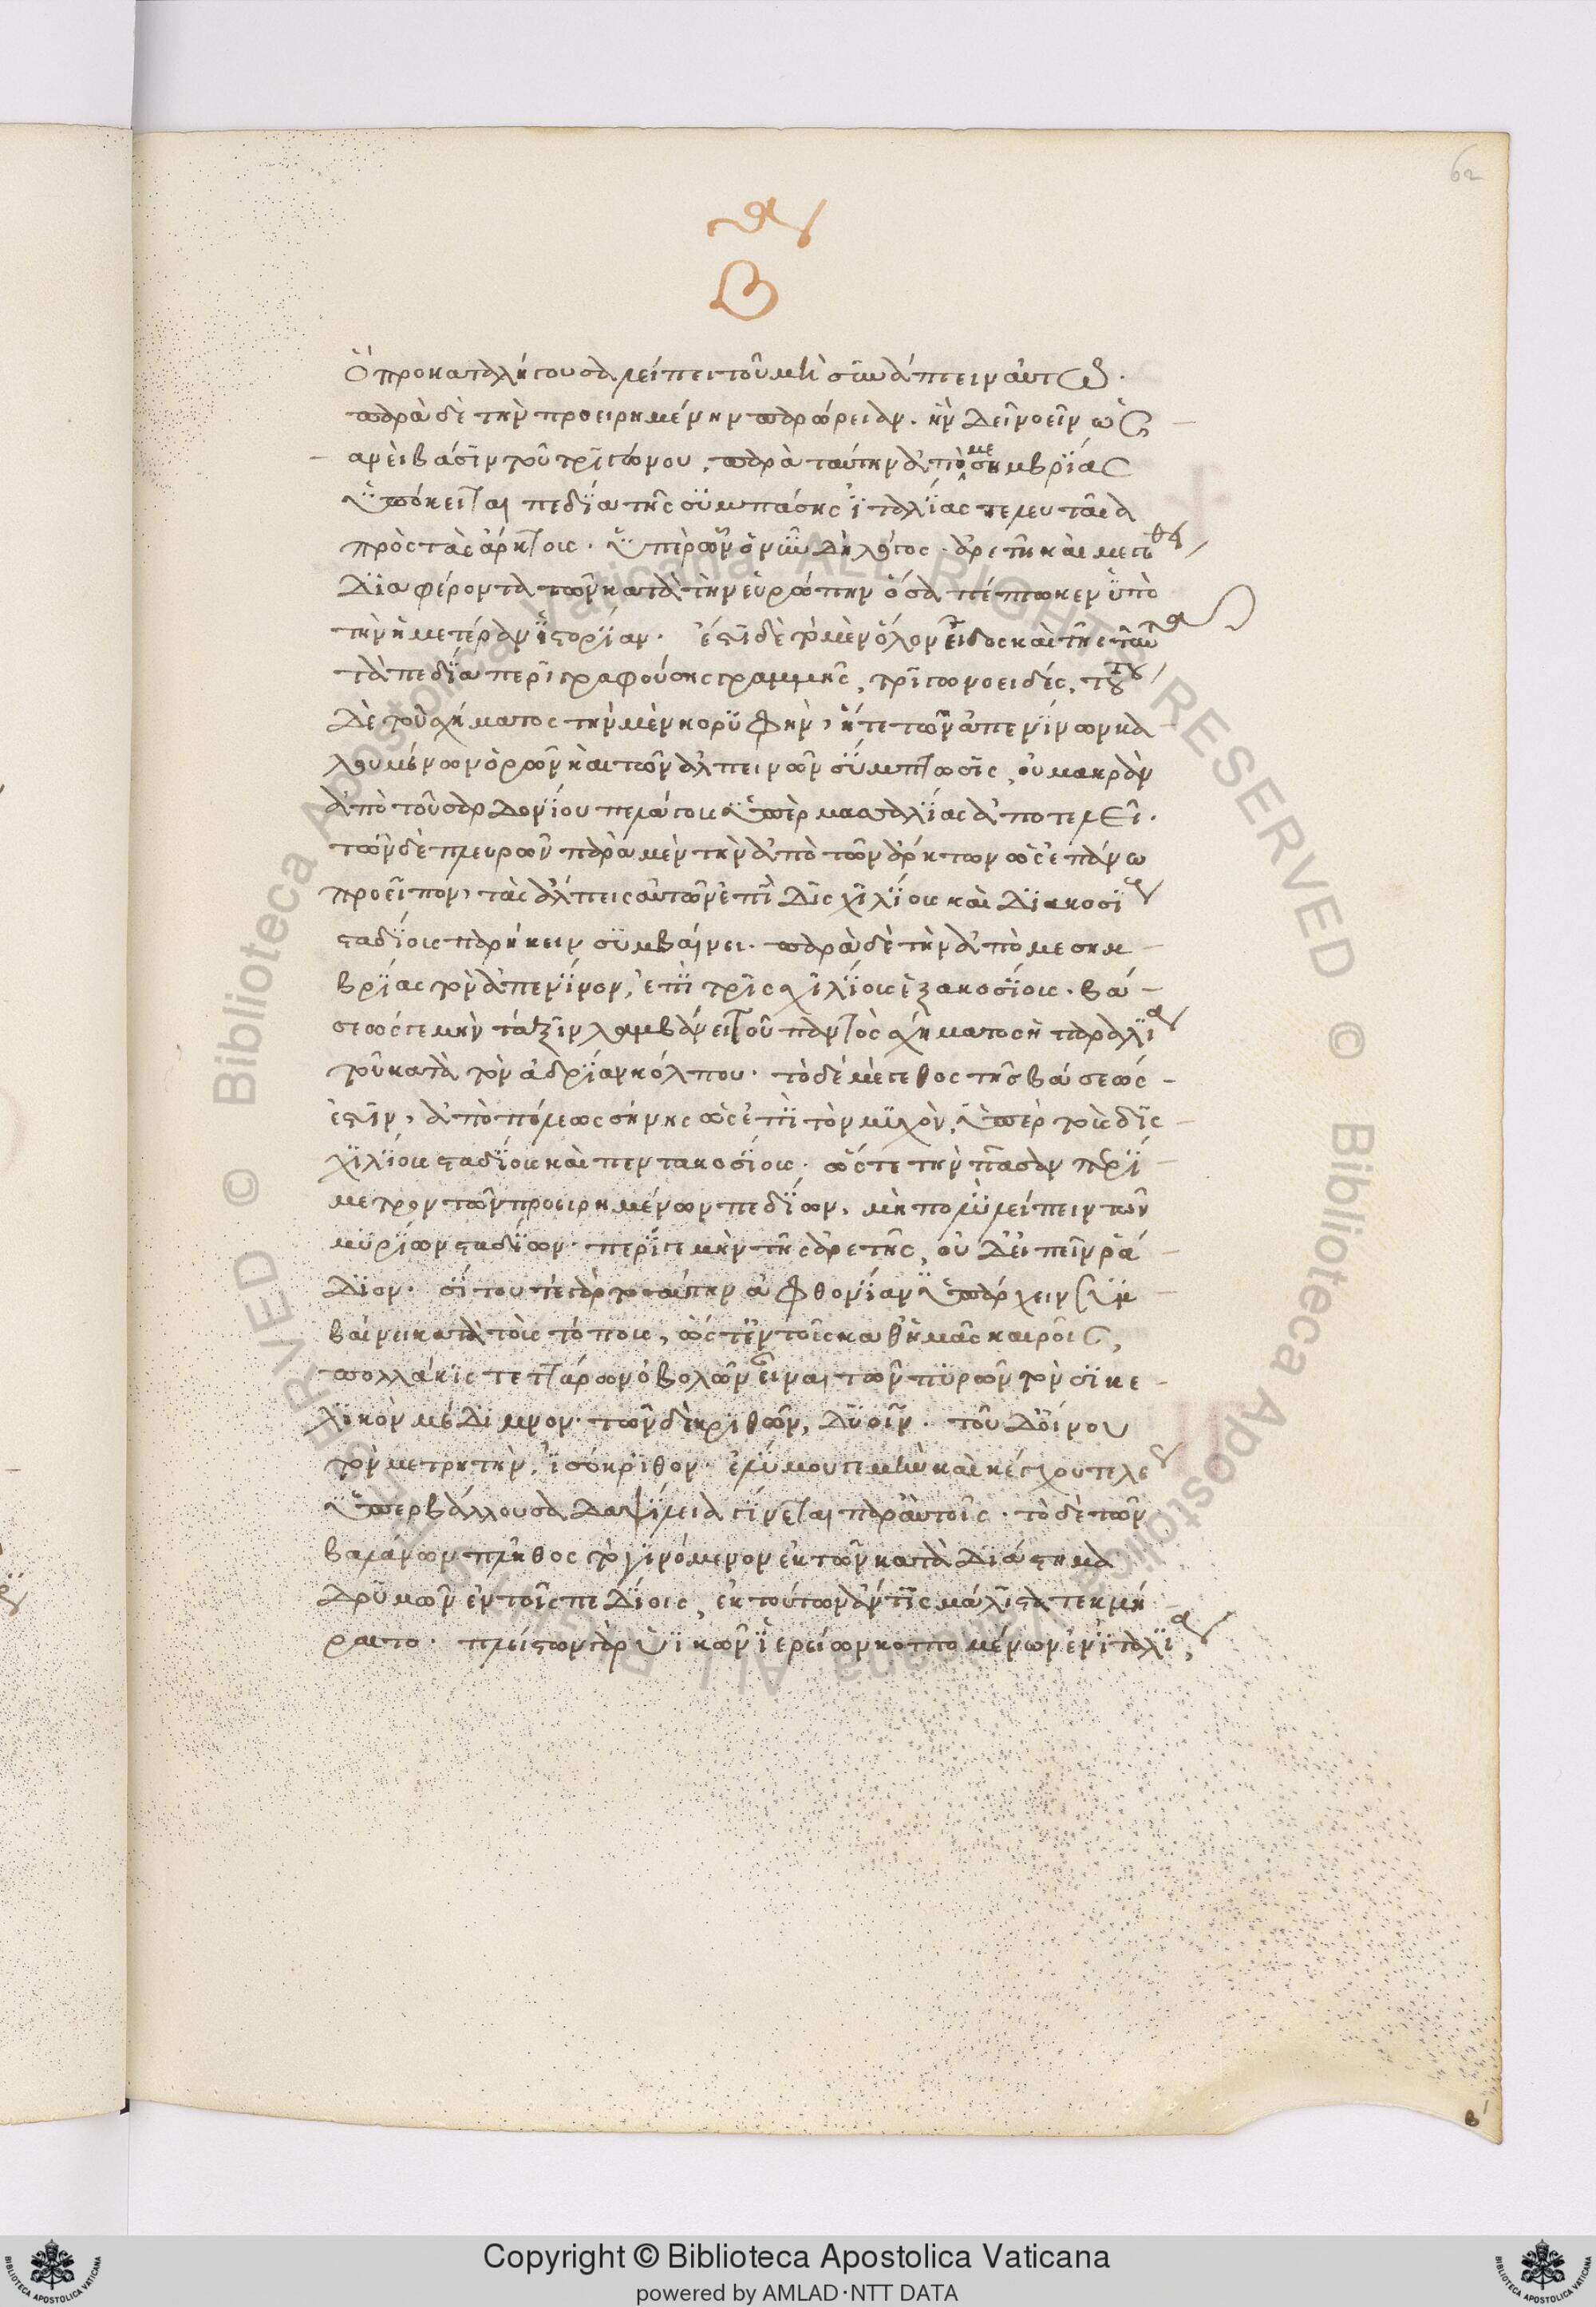 62
Β
ὃ προκαταλήγουσα λείπει τοῦ μὴ συνάπτειν αὐτῶ.
παρὰ δὲ τὴν προειρημένην παρώρειαν. ἣν δεῖ νοεῖν ὡς
ἀνεὶ βάσιν τοῦ τριγώνου, παρὰ ταύτην ἀπὸ μεσημβρίας
ὑπόκειται πεδία τῆς συμπάσης ἰταλίας τελευταῖα
πρὸς τὰς ἄρκτους. ὑπὲρ ὧν ὁ νῦν δὴ λόγος. ἀρετῆ καὶ μεγέθει
διαφέροντα τῶν κατὰ τὴν εὐρώπην ὅσα πέπτωκεν ὑπὸ
τὴν ἡμετέραν ἱστορίαν. ἐστὶ δὲ τὸ μὲν ὅλον εἶδος καὶ τῆς ταῦτα
τὰ πεδία περιγραφούσης γραμμῆς, τριγωνοειδές, τούτου
δὲ τοῦ σχήματος τὴν μὲν κορυφὴν, ἥτε τῶν ἀπεννίνων κα
λουμένων ὀρῶν καὶ τῶν ἀλπεινῶν σύμπτωσις, οὐ μακρὰν
ἀπὸ τοῦ σαρδονίου πελάγους ὑπὲρ μασσαλίας ἀποτελεῖ.
τῶν δὲ πλευρῶν παρὰ μὲν τὴν ἀπὸ τῶν ἄρκτων ὡς ἐπάνω
προεῖπον, τὰς ἄλπεις αὐτῶν ἐπὶ δισχιλίους καὶ διακοσίους
σταδίους παρήκειν συμβαίνει. παρὰ δὲ τὴν ἀπὸ μεσημ
βρίας τὸν ἀπεννῖνον, ἐπὶ τρισχιλίους ἑξακοσίους. βά
σεώς γε μὴν τάξιν λαμβάνει τοῦ παντὸς σχήματος ἡ παραλία
τοῦ κατὰ τὸν ἀδρίαν κόλπου. τὸ δὲ μέγεθος τῆς βάσεώς
ἐστιν, ἀπὸ πόλεως σήνης ὡς ἐπὶ τὸν μυχὸν, ὑπὲρ τοὺς δισ
χιλίους σταδίους καὶ πεντακοσίους. ὥστε τὴν πᾶσαν περί
μετρον τῶν προειρημένων πεδίων, μὴ πολὺ λείπειν τῶν
μυρίων σταδίων. περί γε μὴν τῆς ἀρετῆς, οὐδ' εἰπεῖν ῥά
διον. σίτου τε γὰρ τοσαύτην ἀφθονίαν ὑπάρχειν συμ
βαίνει κατὰ τοὺς τόπους, ὥστ' ἐν τοῖς καθ' ἡμᾶς καιροῖς,
πολλάκις τεττάρων ὀβολῶν εἶναι τῶν πυρῶν τὸν σικε
λικὸν μέδιμνον. τῶν δὲ κριθῶν, δυοῖν. τοῦ δ' οἴνου
τὸν μετρητὴν, ἰσόκριθον. ἐλύμου γε μὴν καὶ κέγχρου τελέως
ὑπερβάλλουσα δαψίλεια γίνεται παρ' αὐτοῖς. τὸ δὲ τῶν
βαλάνων πλῆθος τὸ γινόμενον ἐκ τῶν κατὰ διάστημα
δρυμῶν ἐν τοῖς πεδίοις, ἐκ τούτων ἄν τις μάλιστα τεκμή
ραιτο. πλείστων γὰρ ὑϊκῶν ἱερείων κοπτομένων ἐν ἰταλία,
β´
Copyright © Biblioteca Apostolica Vaticana
powered by AMLAD·NTT DATA